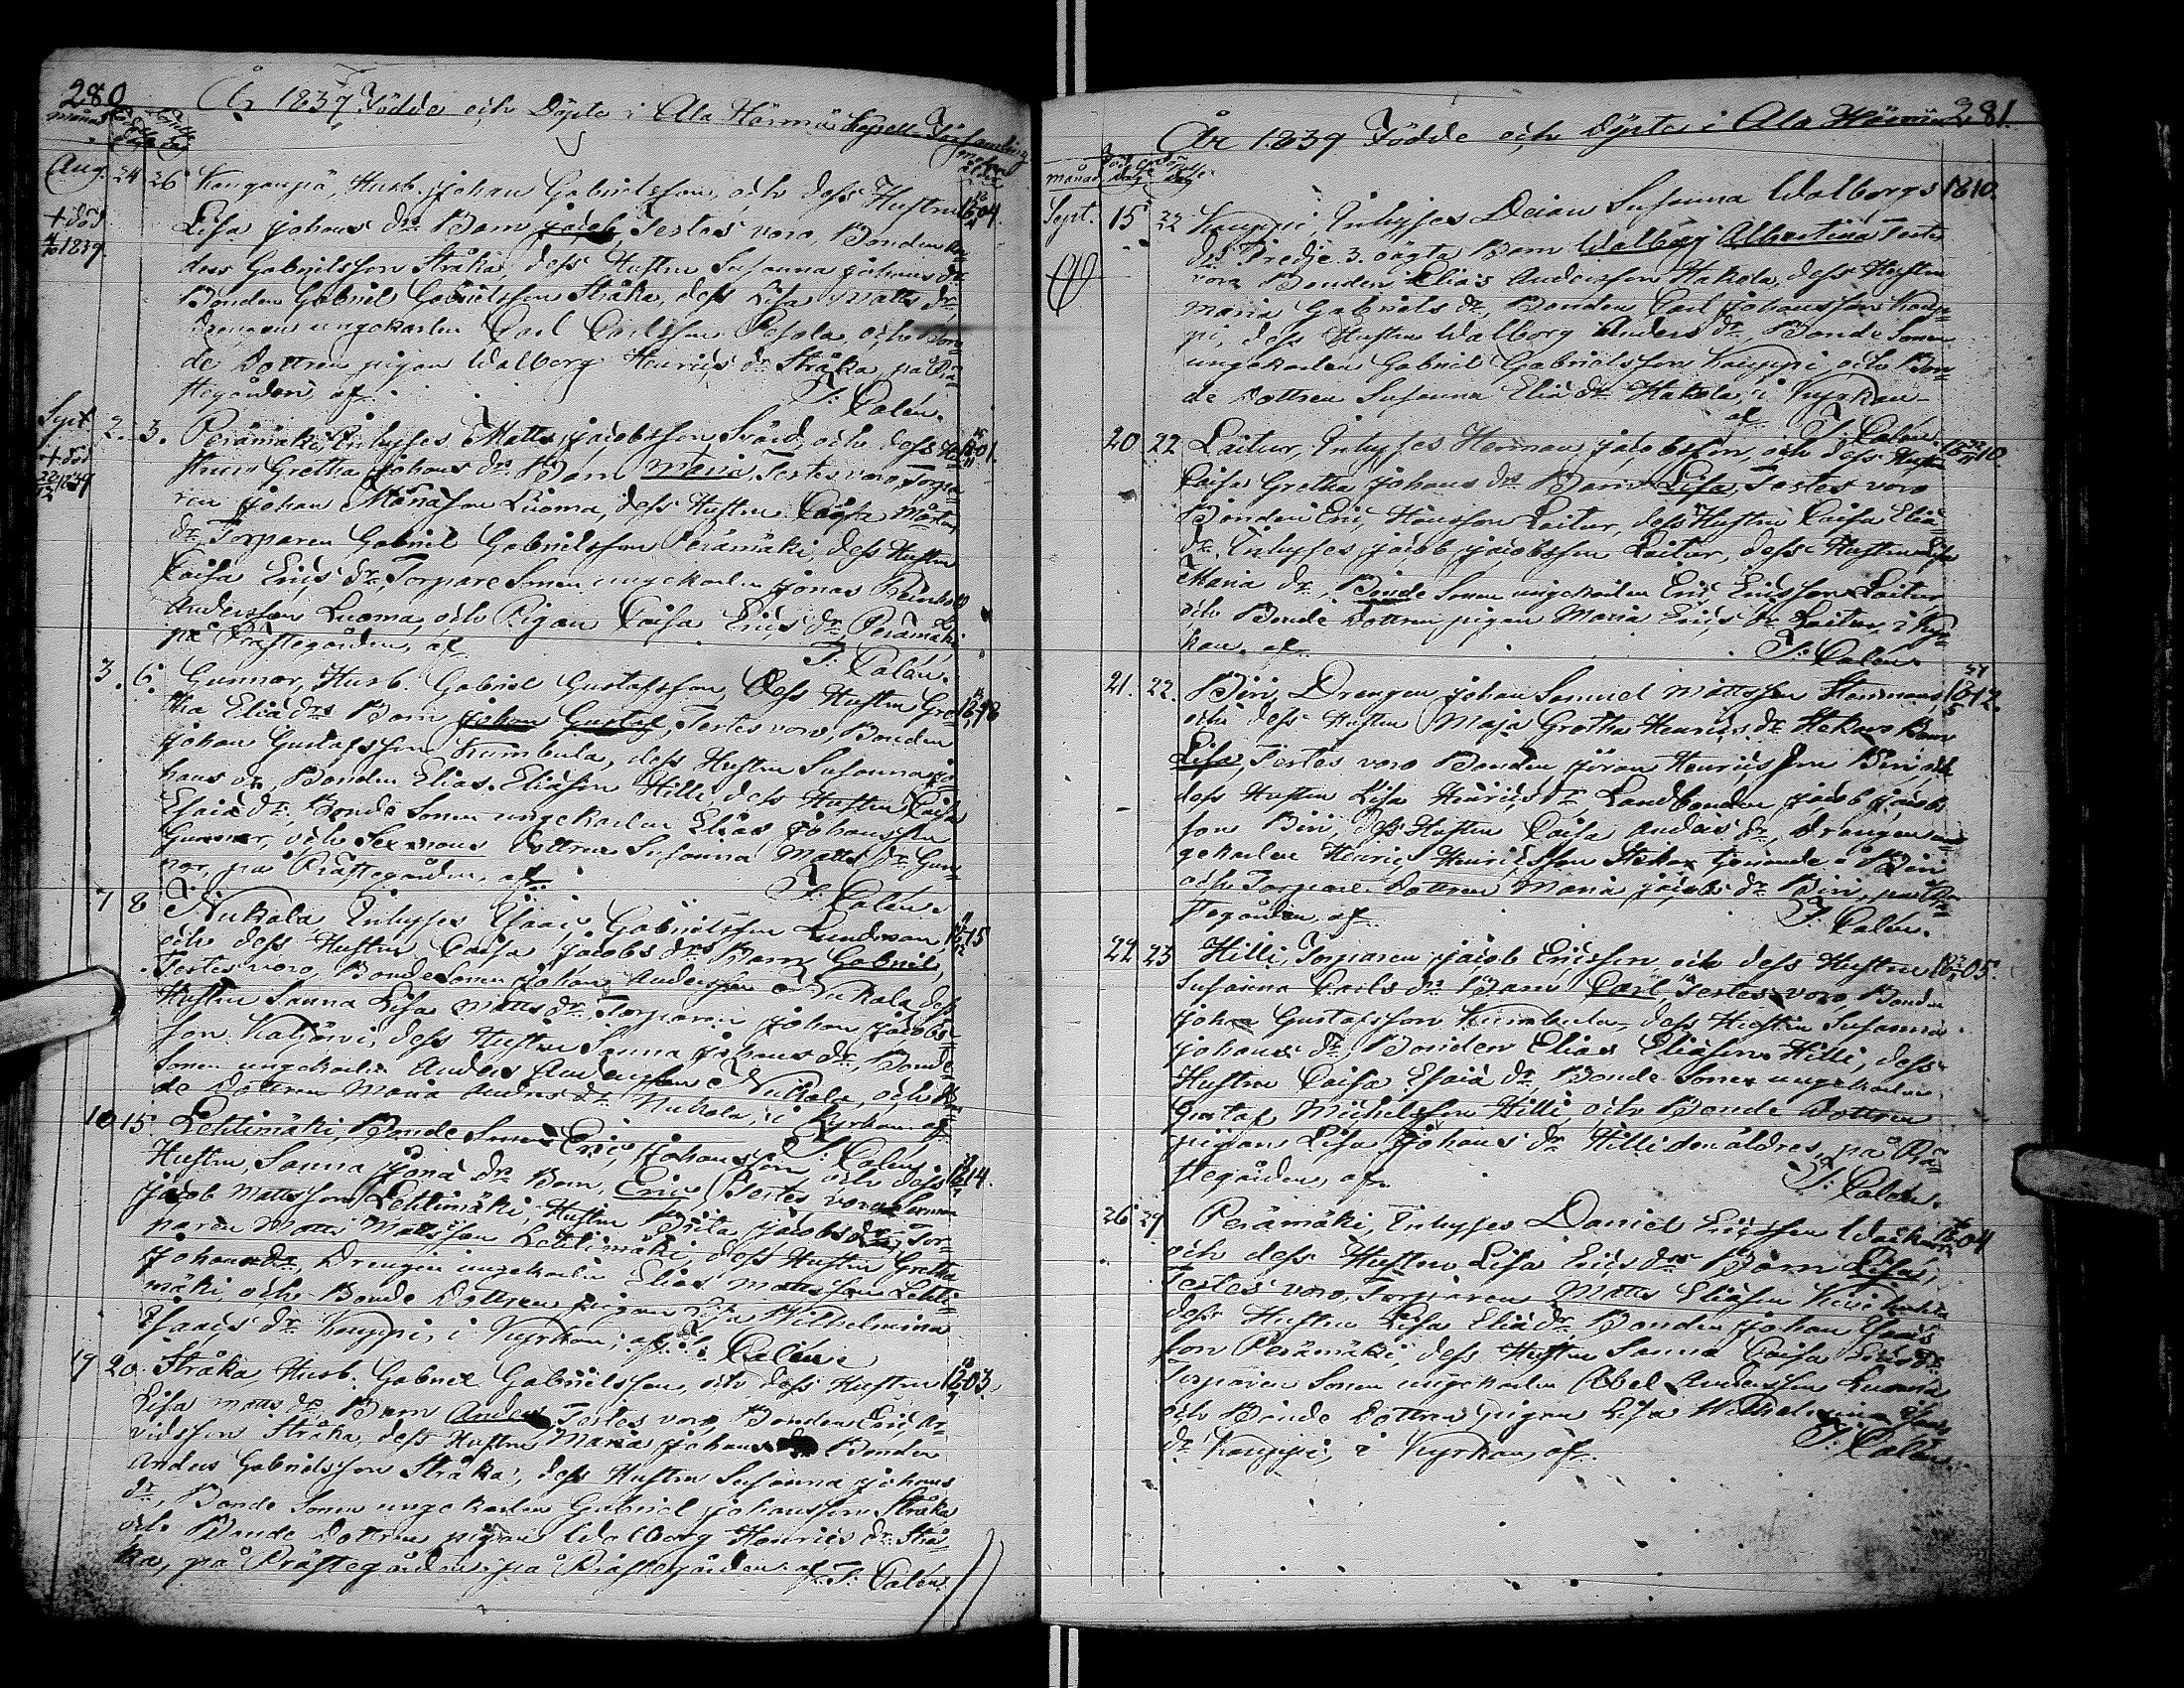 280
År 1839 Födde och Döpte i Ala Härmä Capell Församling
månad
Aug. 24 26 Kanganpä, Husb. Johan Gabrielsson, och dess Hustru 1804.
+ död Lisa Johans dr Barn Jacob, Testes voro, Bonden An-
1839. ders Gabrielsson Stråka, dess Hustru Susanna Johans dr
Bonden Gabriel Gabrielsson Stråka, dess Lisa Matts dr,
Drengen ungekarlen Carl Carlsson Pesola och Bon-
de Dottren pigan Walborg Henrics dr Stråka, på Prä-
stegården af. J: Calén.
Sept 2. 3. Perämäki Inhyses Matts Jacobsson Svärd, och dess Hu- 1801.
+ död stru Gretha Johans dr Barn Maria, Testes voro, Torpa-
22/12 1839 ren Johan Luoma, dess Hustru Caisa Mårtens
dr, Torparen Gabriel Gabrielsson Perämäki, dess Hustru
Caisa Erics dr, Torpare Sonen ungekarlen Jonas
Andersson Luoma, och Pigan Caisa Erics dr Perämäki
på Prästegården, af J: Calén.
3. 6. Gunnar, Husb. Gabriel Gustafsson, Dess Hustru Gre- 1798
tha Elia drs Barn Johan Gustaf, Testes voro, Bonden
Johan Gustafsson Kumbula, dess Hustru Susanna Jo-
hans dr, Bonden Elias Eliasson Hilli, dess Hustru Caisa
Esaiæ dr, Bonde Sonen ungekarlen Elias Johansson
Gunnar, och Sexmans Dottren Susanna Matts dr Gun-
nar, på Prästegården, af J: Calén.
7 8 Nukala, Inhyses Esaias Gabrielsson Lundman 1815
och dess Hustru Caisa Jacobs drs Barn Gabriel,
Testes voro, Bonde Sonen Johan Andersson Nukala, dess
Hustru Sanna Lisa Matts dr, Torparen Johan Jacobs-
son Katjärvi, dess Hustru Sanna Johans dr, Bonde
Sonen ungekarlen Anders Andersson Nukala, och Bon-
de Dottren Maria Anders dr Nukala, i Kyrkan af
J: Calén.
10 15 Lehtimäki, Bonde Sonen Eric Johansson, och dess 1814.
Hustru, Sanna Jona drs Barn, Eric, Testes voro
Jacob Mattsson Lehtimäki, Hustru Brita Jacobs dr, Tor-
paren Matts Mattsson Lehtimäki, dess Hustru Gretha
Johans dr, Drengen ungekarlen Elias Mattsson Lehti-
mäki, och Bonde Dottren pigan Lisa Wilhelmina
Esaiæ dr Kauppi, i Kyrkan, af J: Calén.
19 20. Stråka, Husb. Gabriel Gabrielsson, och dess Hustru 1803.
Lisa Matts drs Barn Anders Testes voro, Bonden Eric Ar-
vidsson Stråka, dess Hustru Maria Johans dr Bonden
Anders Gabrielsson Stråka, dess Hustru Susanna Johans
dr, Bonde Sonen ungekarlen Gabriel Johansson Stråka
och Bonde Dottren pigan Walborg Henrics dr Strå-
ka, på Prästegården på Prästegården. af J: Calén
281.
År 1839 Födde och döpte i Ala Härmä
månad
Sept. 15 22 Kauppi, Inhyses Deian Susanna Walborgs 1810.
drs Tredje 3. oägta Barn Walborg Albertina Testes
voro Bonden Elias Andersson Hakola, dess Hustru
Maria Gabriels dr, Bonden Carl Johansson Kaup-
pi, dess Hustru Walborg Anders dr, Bonde Sonen
ungekarlen Gabriel Gabrielsson Kauppi och Bon-
de Dottren Susanna Elia dr Hakola, i Kyrkan
af J: Calén.
20 22 Laitur, Inhyses Herman Jacobsson, och dess Hustru 1810
Caisa Gretha Johans drs Barn Lisa, Testes voro
Bonden Eric Hansson Laitur, dess Hustru Caisa Elia
dr, Inhyses Jacob Jacobsson Laitur, dess Hustru Lisa
Maria dr, Bonde Sonen ungekarlen Eric Ericsson Laitur,
och Bonde Dottren pigan Maria Erics dr Laitur, i Kyr-
kan. af J: Calén.
21. 22. Biri, Drengen Johan Samuel Mattsson Stenman, 1812.
och dess Hustru Maja Gretha Henrics dr Barn
Lisa, Testes voro Bonden Jöran Henricsson Biri, och
dess Hustru Lisa Henrics dr, Landbonden Jacob Jacobs-
son Biri, dess Hustru Caisa Anders dr, Drengen un-
gekarlen Henric Henricsson tjenande i Biri
och Torpare Dottren Maria Jacobs dr Biri, på Prä-
stegården, af J: Calén.
22 23 Hilli, Torparen Jacob Ericsson, och dess Hustru 1805.
Susanna Carls drs Barn Carl, Testes voro Bonden
Johan Gustafsson Kumbula, dess Hustru Susanna
Johans dr, Bonden Elias Eliasson Hilli, dess
Hustru Caisa Esaiæ dr, Bonde Sonen ungekarlen
Gustaf Michelsson Hilli, och Bonde Dottren
pigan Lisa Johans dr Hilli den äldres, på Prä-
stegården, af. J: Calén.
26 29 Perämäki, Inhyses Daniel Ericsson 1804
och dess Hustru Lisa Erics drs Barn Lisa,
Testes voro, Torparen Matts Eliasson
dess Hustru Lisa Elia dr, Bonden Johan Esaiæ
son Perämäki, dess Hustru Sanna Caisa Erics dr
Torparen Sonen ungekarlen Abel Andersson Luoma
och Bonde Dottren pigan Lisa Wilhelmina Esaiæ
dr Kauppi, i Kyrkan, af J: Calén.